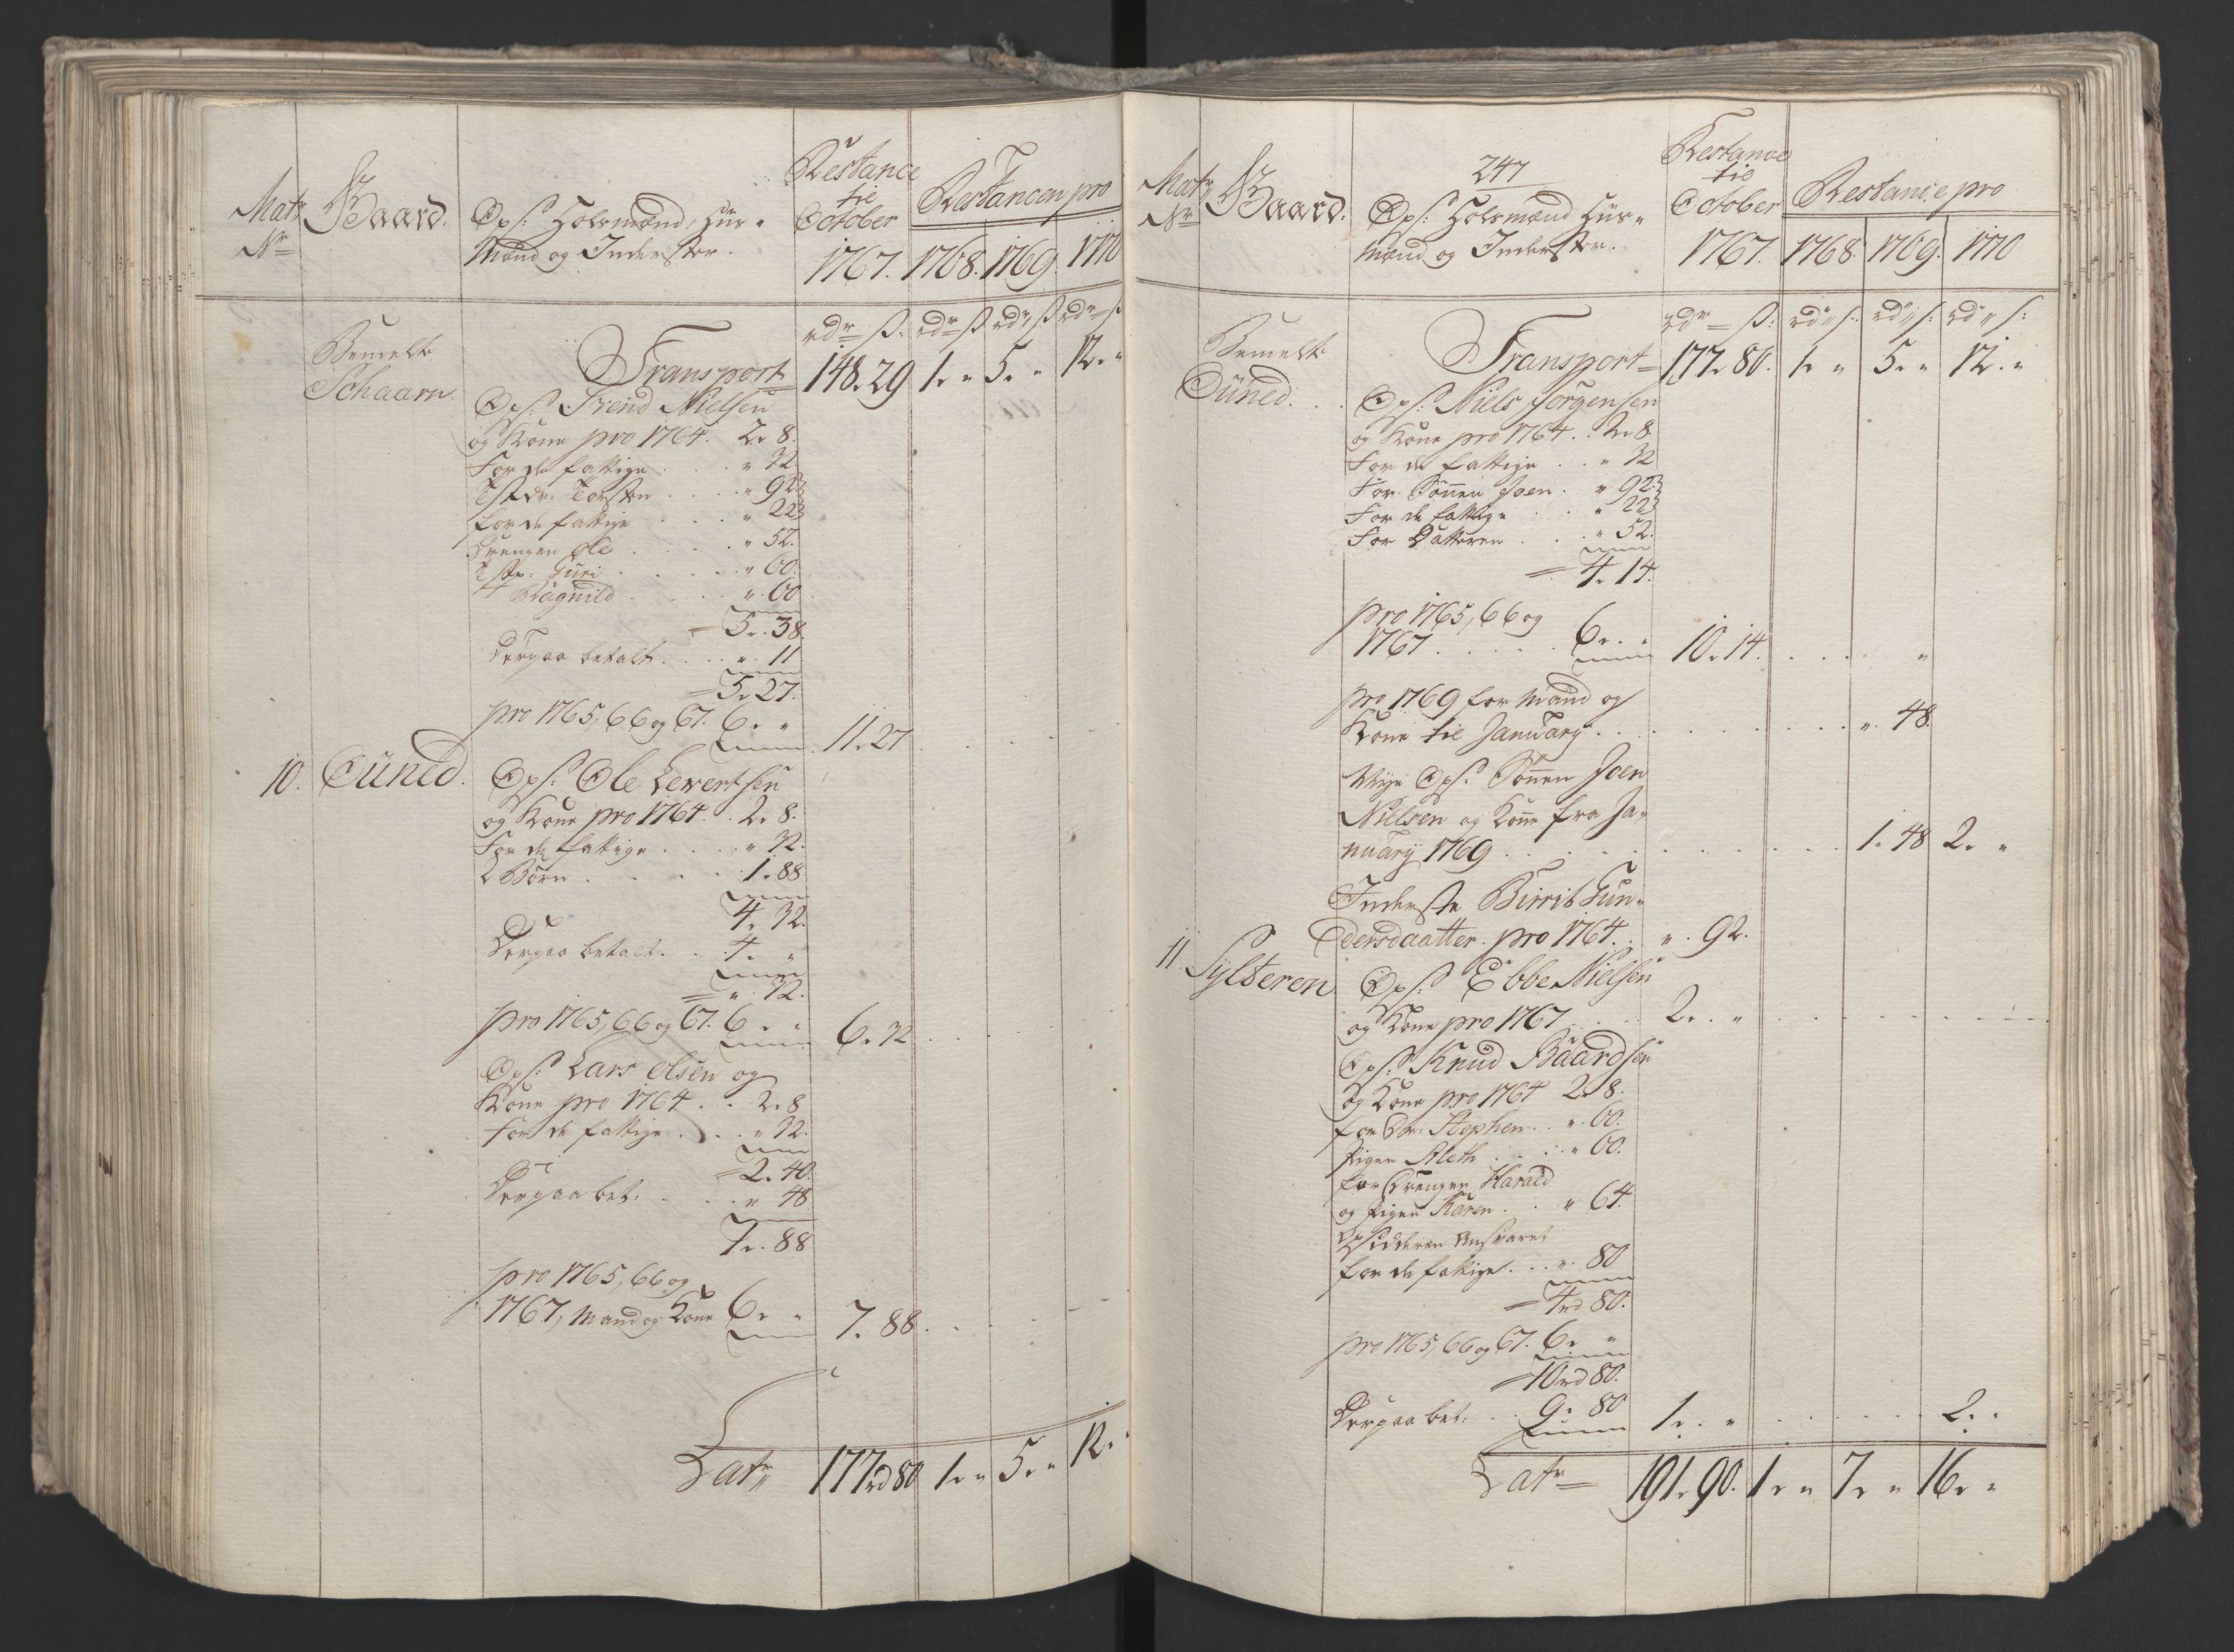 Matr
No
Gaard.
Ops: Holsmænd, Huus-
Mænd og Inderster.
Restance
til
October
1767.
Restancen pro
1768. 1769. 1770
rdr ß. rdr ß rdr ß rdr ß
Bemelte
Schaarn.
Transport 148. 29 1. " 5. " 12. "
Ops: Trend Nielsen
og Kone pro 1764. 2. 8.
For de fattige . . . " 32.
Torsten . . . . " 92
for de fattige . . . " 22
Drengen Ole . . . . " 52.
Guri . . . . . " 60.
Ragnild . . . . " 60
5. 38.
Derpaa betalt . . . . " 11
5. 27.
pro 1765, 66 og 67. 6. " 11. 27
10. Ouned. Ops: Ole Levertsen
og Kone pro 1764. . 2. 8.
For de fattige . . . . " 32.
2 Børn . . . . 1. 88
4. 32.
Derpaa betalt. . . 4. "
" 32.
pro 1765, 66 og 67. 6. " 6. 32
Ops: Lars Olsen og
Kone pro 1764 . . 2. 8
For de fattige . . . " 32.
2. 40.
Derpaa bet. . . . " 48
1. 88
pro 1765, 66 og
1767, Mand og Kone 6. " 7. 88.
Latr 177rd 80 1. " 5. " 12. "
247
Matr
Nr
Gaard.
Ops: Holsmænd Huus-
Mænd og Inderster.
Restance
til
October
1767.
Restance pro
1768. 1769. 1770
rdr ß: rd ß: rd ß: rd ß:
Bemelte
Ouned. . .
Transport 177. 80. 1. " 5. " 12. "
Ops: Niels Jörgensen
og Kone pro 1764 . . 2. 8.
For de fattige . . " 32
For Sönnen Joen . " 92.
For de fattige . . " 22
For Datteren . . . " 52.
4. 14.
pro 1765, 66 og
1767 . . . . . 6. . " 10. 14. . . . "
pro 1769 for Mand og
Kone til January . . . . . . . . " 48.
Nye Ops: Sönnen Joen
Nielsen og Kone fra Ja-
nuary 1769 . . . . . . . . . 1. 48 2. "
Inderste Birrit Gun-
dersdaatter. pro 1764. . " . 92.
11. Sylteren Ops: Ebbe Nielsen
og Kone pro 1767 . . . 2. . " . . . . . . .
Ops: Knud Baardsen
og Kone pro 1764 2. 8.
for Stephen . . " 60.
Pigen Aleth . . . " 60.
for Drengen Harald
og Pigen Karen . . " 64.
Opsidderen Ansvaret
for de fattige. . . " 80
4rd 80.
pro 1765, 66 og 67. 6. "
10rd 80.
Derpaa bet: . . 9. 80 1. . " . . . . . . 2. .
Latr 191. 90. 1. " 7. " 16. "